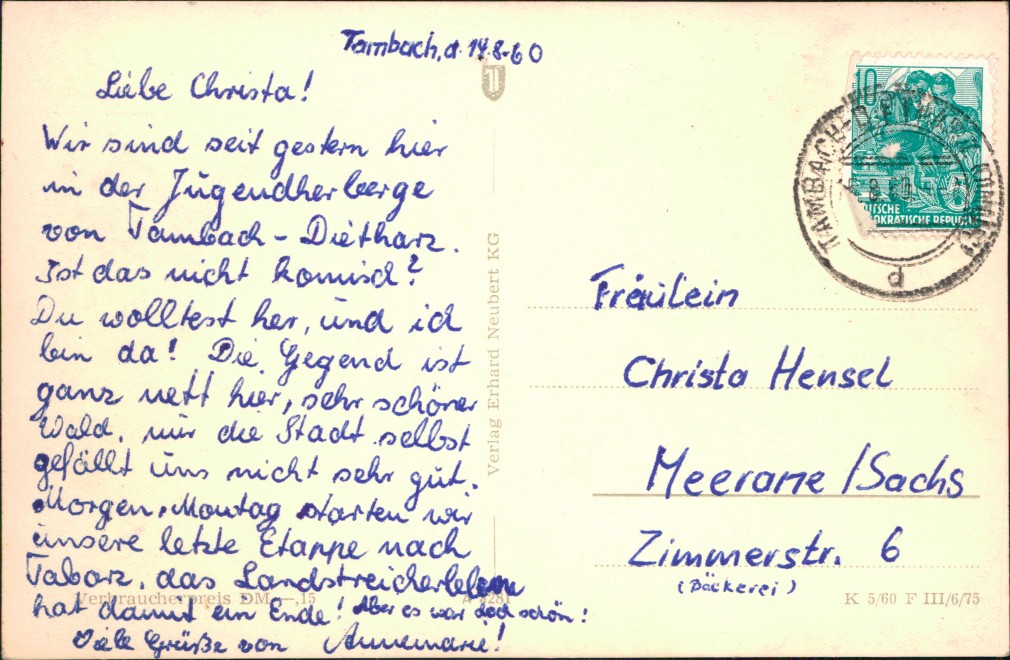 Tambach, d. 14.8.60
Liebe Christa!
Wir sind seit gestern hier
in der Jugendherberge
von Tambach-Dietharz.
Ist das nicht komisch?
Du wolltest her, und ich
bin da! Die Gegend ist
ganz nett hier, sehr schöner
Wald, nur die Stadt selbst
gefällt uns nicht sehr gut.
Morgen, Montag starten wir
unsere letzte Etappe nach
Tabarz, das Landstreicherleben
hat damit ein Ende! Aber es war doch schön!
Viele Grüße von Annemarie!
Verbraucherpreis DM —,15
Verlag Erhard Neubert KG
10
DEUTSCHE
DEMOKRATISCHE REPUBLIK
TAMBACH-D
d
Fräulein
Christa Hensel
Meerane /Sachs
Zimmerstr. 6
(Bäckerei)
K 5/60 F III/6/75